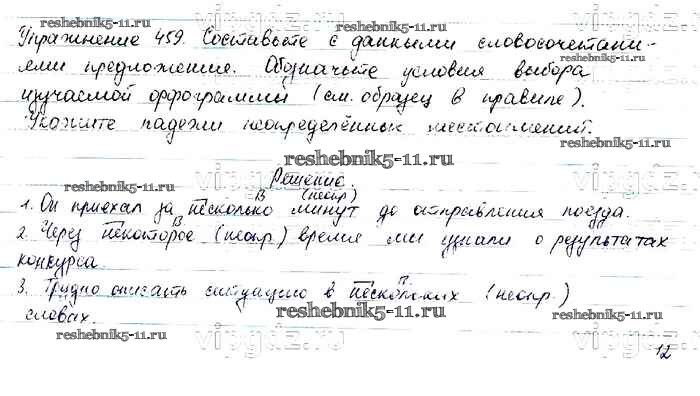 reshebnik5-11.ru reshebnik5-11.ru
Упражнение 459. Составьте с данными словосочетани-
ями предложения. Обозначьте условия выбора
изучаемой орфограммы (см. образец в правиле).
Укажите падежи неопределённых местоимений.
reshebnik5-11.ru
Решение.
reshebnik5-11.ru reshebnik5-11.ru
В (неопр)
1. Он приехал за несколько минут до отправления поезда.
В
2. Через некоторое (неопр) время мы узнали о результатах
конкурса.
П
3. Трудно описать ситуацию в нескольких (неопр.)
словах.
reshebnik5-11.ru reshebnik5-11.ru
vipgdz.com
12